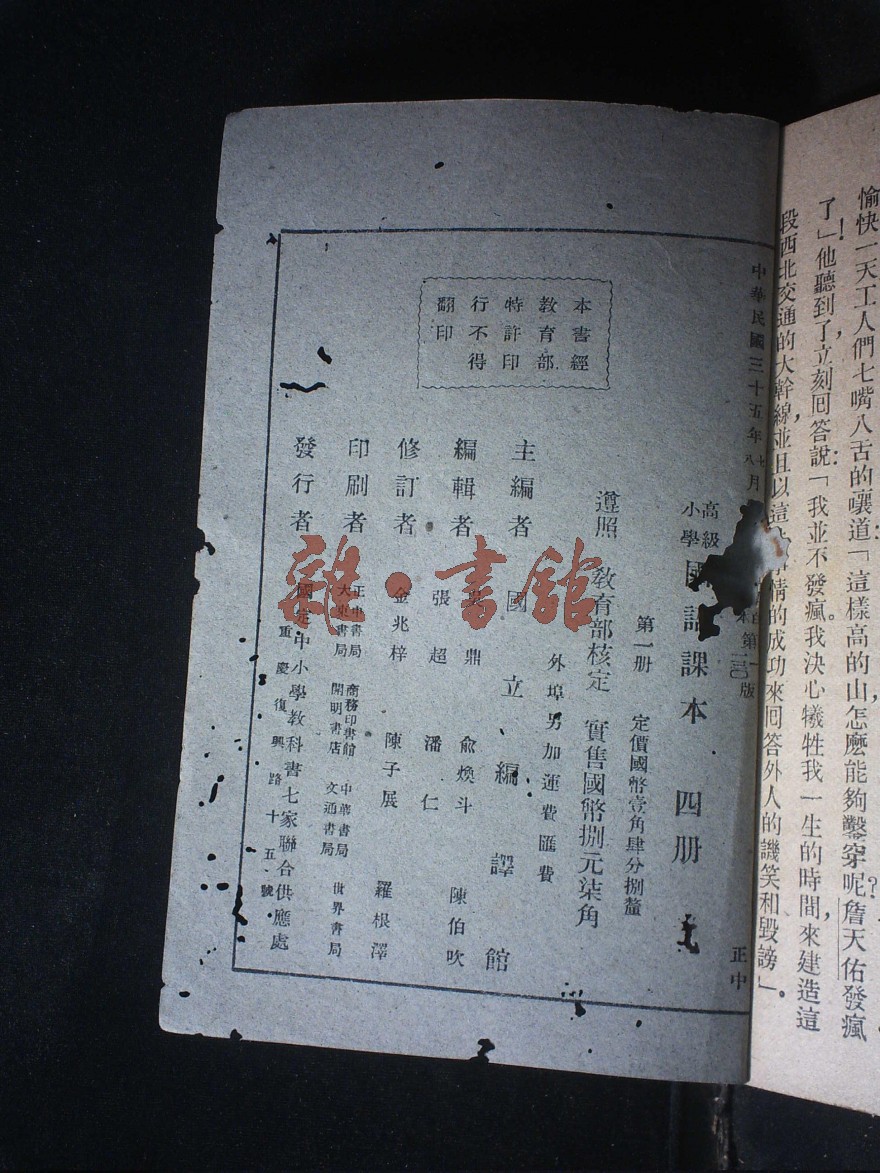 愉快一天工人們七嘴八舌的嚷道「這樣高的山怎麽能夠鑿穿呢?詹天佑發瘋
了!」他聽到了,立刻囘答說:「我並不發瘋。我決心犧牲我一生的時間,來建造這
段西北交通的大幹線,並且以這 情的成功來囘答外人的譏笑和毀謗」。
中華民國三十五年七月
八 第一版
本第一二〇版
正中
高級
小學
國語課本 四册
第一册 定價國幣壹角肆分捌釐
遵照 教育部核定 實售國幣捌元柒角
外埠另加運費匯費
本書經
教育部
特許印
行不得
翻印
主編者 國立編譯館
編輯者 吳鼎 俞煥斗 陳伯吹
張超 潘仁
修訂者 金兆梓 陳子展 羅根澤
印刷者 正中書局 商務印書館 中華書局 世界書局
大東書局 開明書店 文通書局
發行者 國定中小學教科書七家聯合供應處
重慶復興路十五號
雜·書館